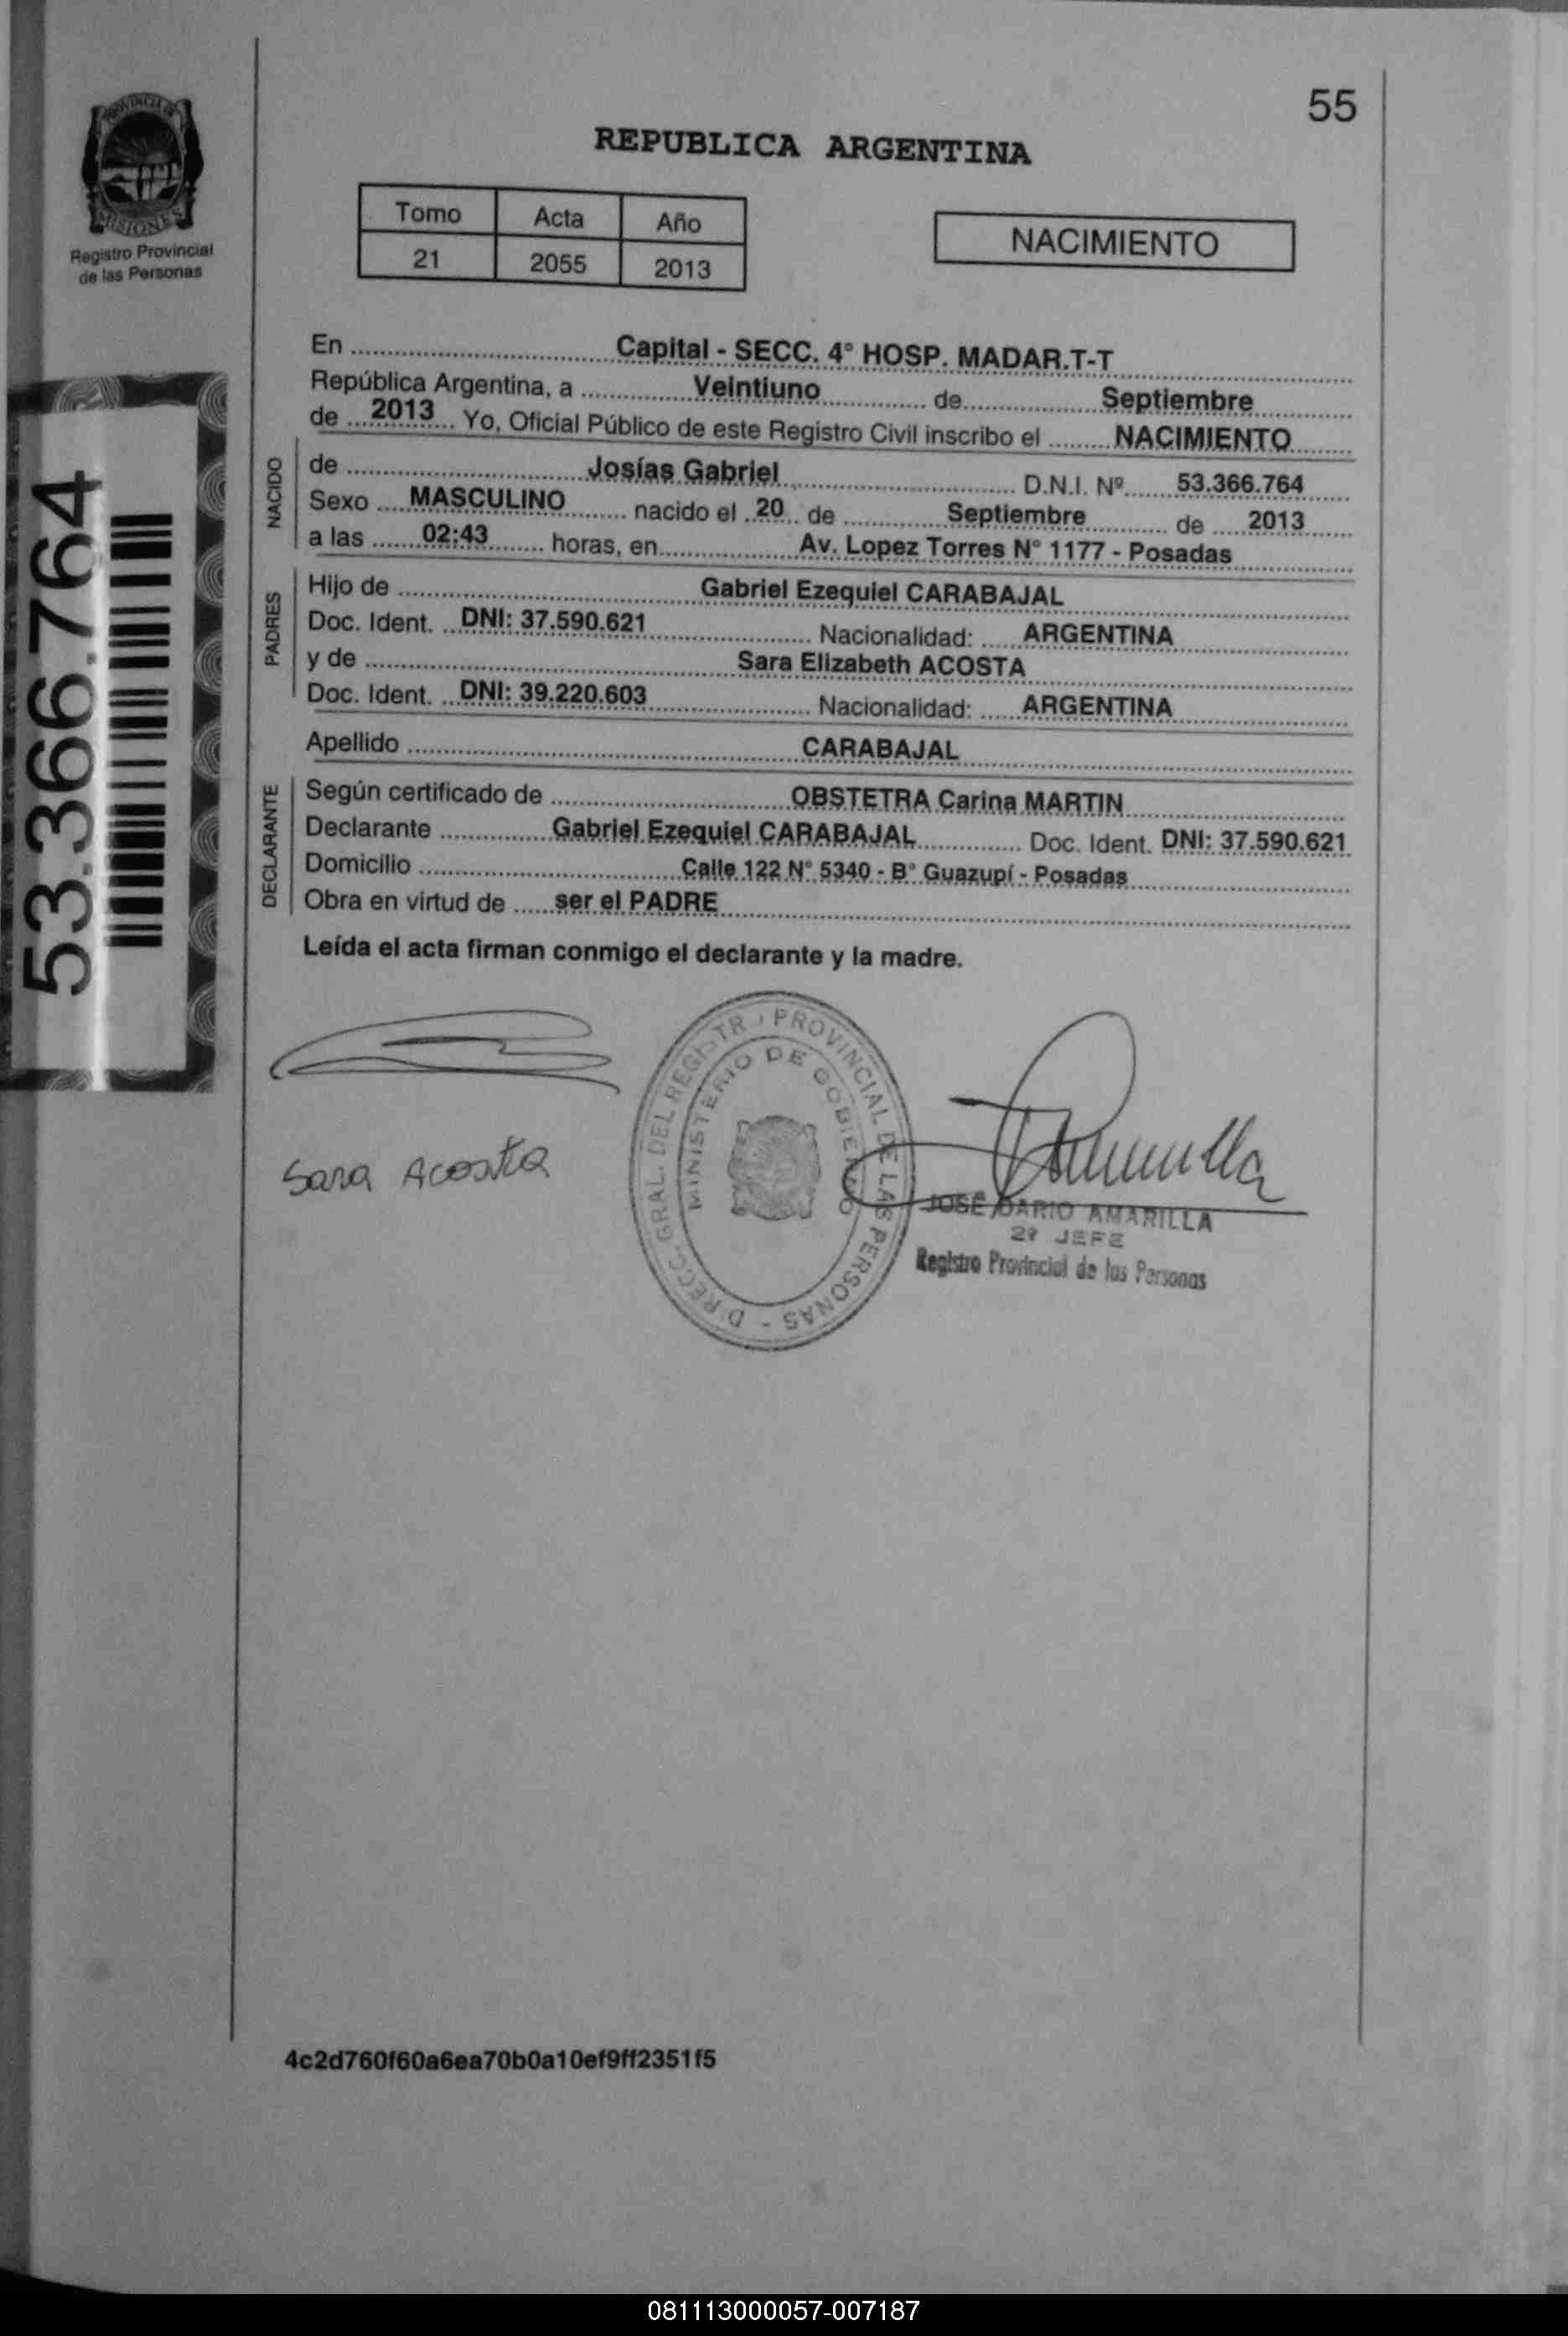 55
PROVINCIA DE
MISIONES
Registro Provincial
de las Personas
REPUBLICA ARGENTINA
Tomo Acta Año
21 2055 2013
NACIMIENTO
En ........ Capital - SECC. 4° HOSP. MADAR.T-T
República Argentina, a ........ Veintiuno ........ de ........ Septiembre
de ........ 2013 ........ Yo, Oficial Público de este Registro Civil inscribo el ........ NACIMIENTO
NACIDO
de ........ Josías Gabriel ........ D.N.I. Nº ........ 53.366.764
Sexo ........ MASCULINO ........ nacido el ..20.. de ........ Septiembre ........ de ........ 2013
a las ........ 02:43 ........ horas, en ........ Av. Lopez Torres N° 1177 - Posadas
PADRES
Hijo de ........ Gabriel Ezequiel CARABAJAL
Doc. Ident. ... DNI: 37.590.621 ........ Nacionalidad: ........ ARGENTINA
y de ........ Sara Elizabeth ACOSTA
Doc. Ident. ... DNI: 39.220.603 ........ Nacionalidad: ........ ARGENTINA
Apellido ........ CARABAJAL
DECLARANTE
Según certificado de ........ OBSTETRA Carina MARTIN
Declarante ........ Gabriel Ezequiel CARABAJAL ........ Doc. Ident. DNI: 37.590.621
Domicilio ........ Calle 122 N° 5340 - B° Guazupí - Posadas
Obra en virtud de ........ ser el PADRE
Leída el acta firman conmigo el declarante y la madre.
53.366.764
Sara Acosta
DIRECC. GRAL. DEL REGISTRO PROVINCIAL DE LAS PERSONAS -
MINISTERIO DE GOBIERNO
JOSÉ DARIO AMARILLA
2º JEFE
Registro Provincial de las Personas
4c2d760f60a6ea70b0a10ef9ff2351f5
081113000057-007187